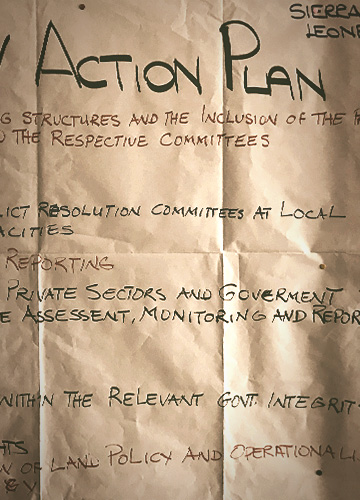 SIERRA
LEONE
Y ACTION PLAN
G STRUCTURES AND THE INCLUSION OF THE
THE RESPECTIVE COMMITTEES
LICT RESOLUTION COMMITTEES AT LOCAL
ACITIES
REPORTING
PRIVATE SECTORS AND GOVERMENT
E ASSESSENT, MONITORING AND REPOR
WITHIN THE RELEVANT GOVT. INTEGRIT
HTS
OF LAND POLICY AND OPERATIONALI
GV